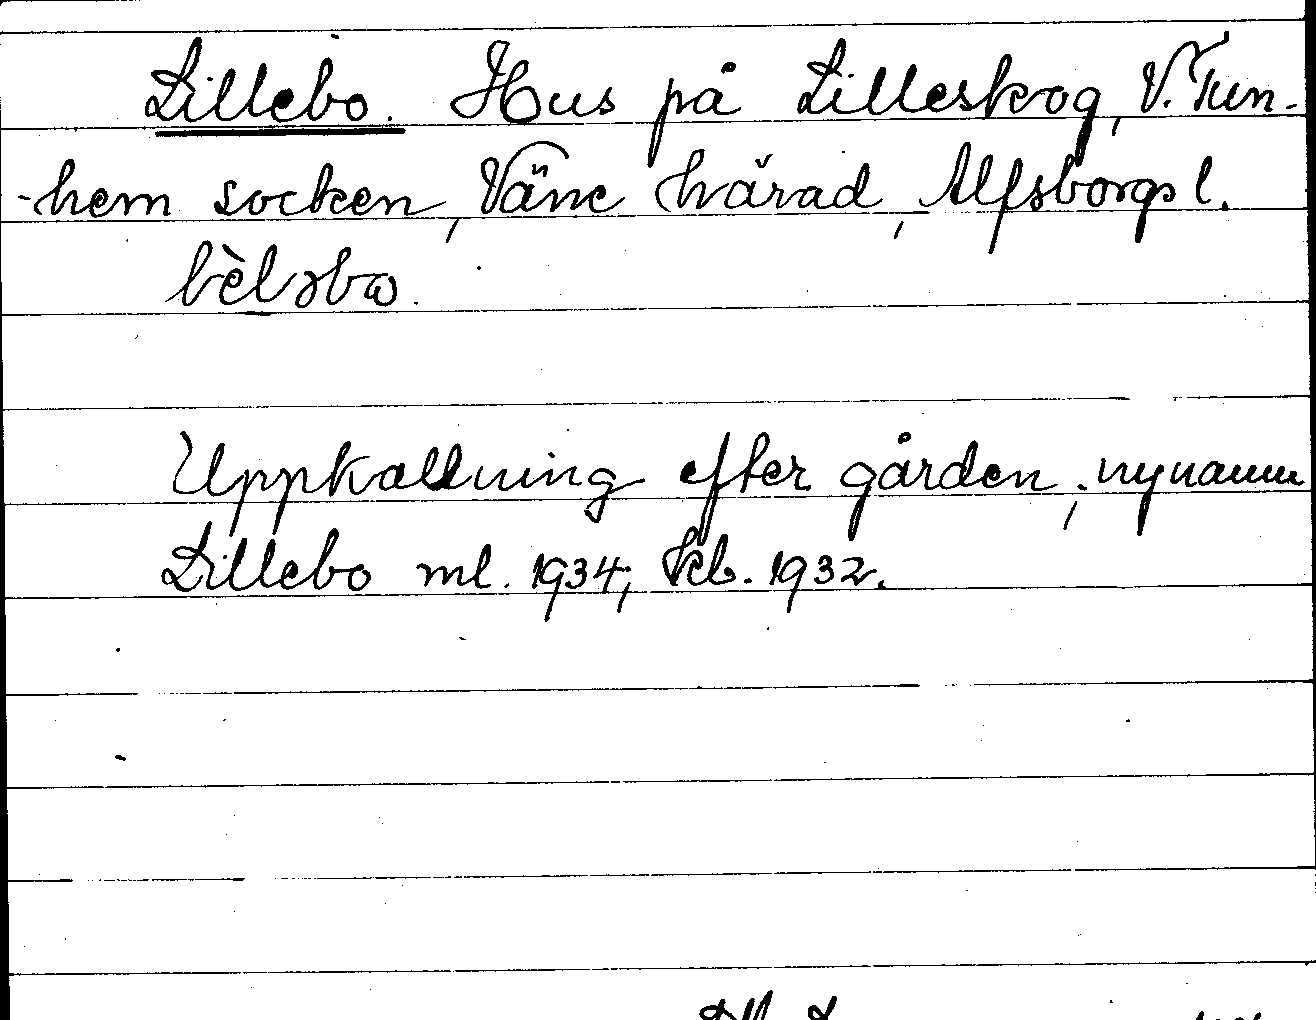 Lillebo. Hus på Lilleskog, V. Tun-
-hem socken, Väne härad, Älfsborgs l.
lèləbω.
Uppkallning efter gården, nynamn
Lillebo ml. 1934; kb. 1932.